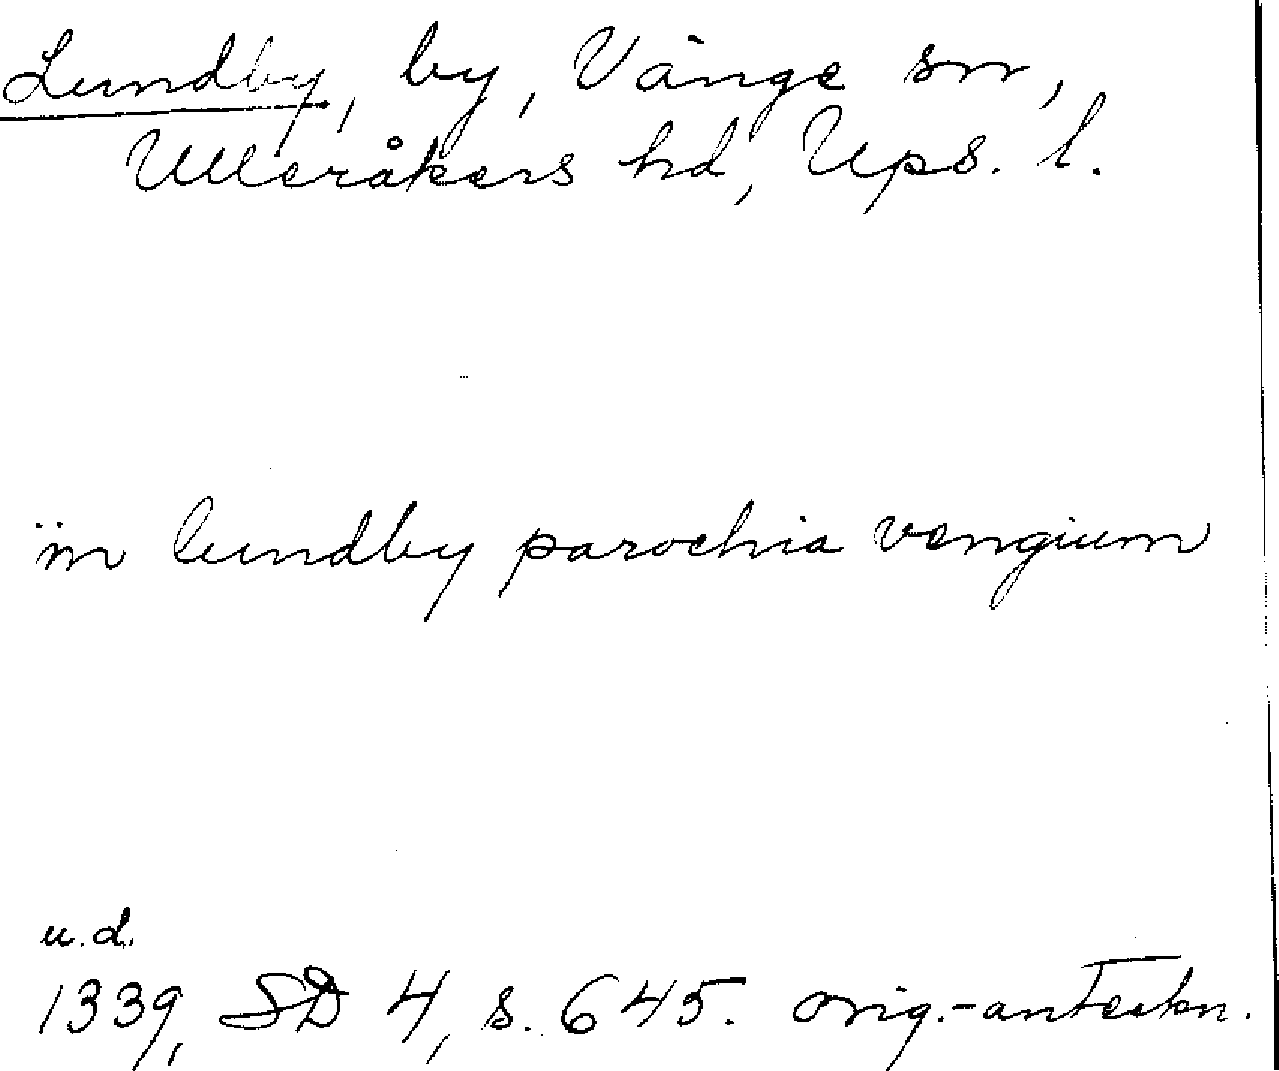 Lundby, by, Vänge sn,
Ulleråkers hd, Ups. l.
in lundby parochia vengium
u.d.
1339, SD 4, s. 645. orig.-anteckn.